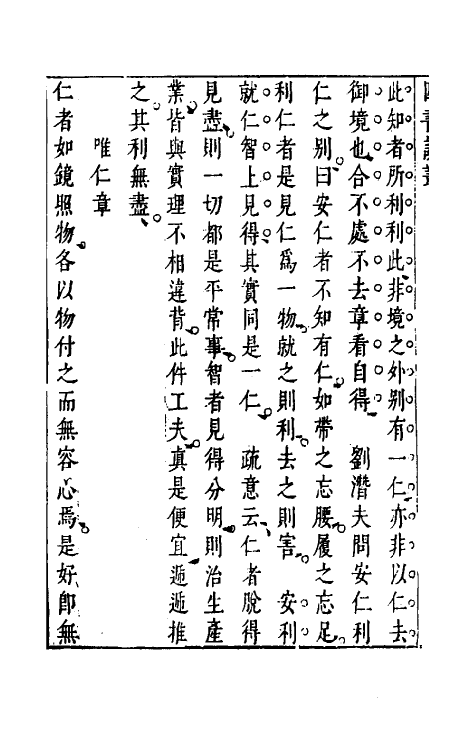 此知者所利利此非境之外別有一仁亦非以仁去
御境也合不處不去章看自得　劉濳夫問安仁利
仁之別曰安仁者不知有仁如帶之忘腰履之忘足
利仁者是見仁爲一物就之則利去之則害　安利
就仁智上見得其實同是一仁　疏意云仁者脫得
見盡則一切都是平常事智者見得分明則治生產
業皆與實理不相違背此件工夫真是便宜遞遞推
之其利無盡
唯仁章
仁者如鏡照物各以物付之而無容心焉是好卽無